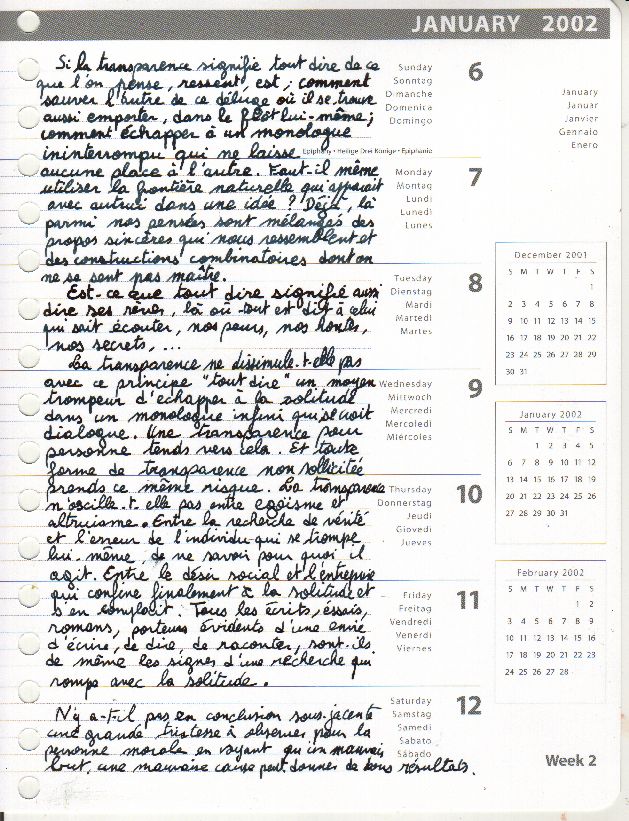 JANUARY 2002
Si la transparence signifie tout dire de ce
que l'on pense, ressent, est ; comment
sauver l'autre de ce déluge où il se trouve
aussi emporter, dans le flot lui-même ;
comment échapper à un monologue
ininterrompu qui ne laisse
aucune place à l'autre. Faut-il même
utiliser la frontière naturelle qui apparait
avec autrui dans une idée ? Déjà, là
parmi nos pensées sont mélangés des
propos sincères qui nous ressemblent et
des constructions combinatoires dont on
ne se sent pas maître.
Est-ce que tout dire signifie aussi
dire ses rêves, là où tout est dit à celui
qui sait écouter, nos peurs, nos hontes,
nos secrets, ...
La transparence ne dissimule-t-elle pas
avec ce principe "tout dire" un moyen
trompeur d'échapper à la solitude
dans un monologue infini qui se croit
dialogue. Une transparence pour
personne tends vers cela. Et toute
forme de transparence non sollicitée
prends ce même risque. La transparence
n'oscille-t-elle pas entre egoïsme et
altruisme. Entre la recherche de vérité
et l'erreur de l'individu qui se trompe
lui-même de ne savoir pour quoi il
agit. Entre le désir social et l'entreprise
qui confine finalement à la solitude et
s'en complait. Tous les écrits, essais,
romans, porteurs évidents d'une envie
d'écrire, de dire, de raconter, sont-ils
de même les signes d'une recherche qui
rompe avec la solitude.
N'y a-t-il pas en conclusion sous-jacente
une grande tristesse à observer pour la
personne morale en voyant qu'un mauvais
but, une mauvaise cause peut donner de bons résultats.
Sunday 6
Sonntag
Dimanche
Domenica
Domingo
Epiphany • Heilige Drei Könige • Epiphanie
Monday 7
Montag
Lundi
Lunedì
Lunes
Tuesday 8
Dienstag
Mardi
Martedì
Martes
Wednesday 9
Mittwoch
Mercredi
Mercoledì
Miércoles
Thursday 10
Donnerstag
Jeudi
Giovedì
Jueves
Friday 11
Freitag
Vendredi
Venerdì
Viernes
Saturday 12
Samstag
Samedi
Sabato
Sábado
January
Januar
Janvier
Gennaio
Enero
December 2001
S M T W T F S
1
2 3 4 5 6 7 8
9 10 11 12 13 14 15
16 17 18 19 20 21 22
23 24 25 26 27 28 29
30 31
January 2002
S M T W T F S
1 2 3 4 5
6 7 8 9 10 11 12
13 14 15 16 17 18 19
20 21 22 23 24 25 26
27 28 29 30 31
February 2002
S M T W T F S
1 2
3 4 5 6 7 8 9
10 11 12 13 14 15 16
17 18 19 20 21 22 23
24 25 26 27 28
Week 2